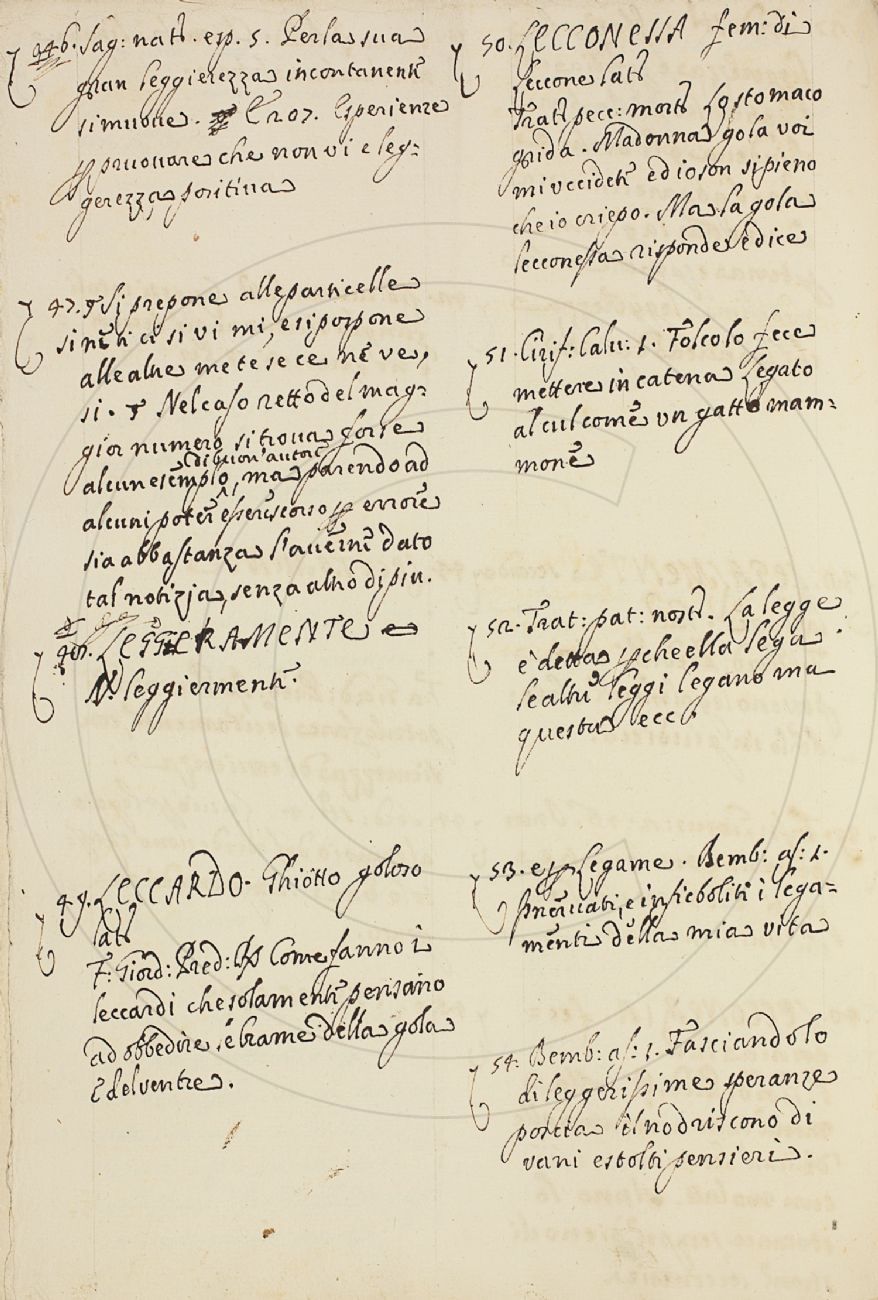 446. Sag: nat: esp. 5. Per la sua
gran leggierezza incontanente
si muove. E 207. Esperienze
p pruovare che non vi e leg:
gerezza positiva
47. Si prepone alle particelle
si ne ti ci si vi mi, e si pospone
alle altre me te se ce ne ve,
si. Nel caso retto del mag:
gior numero si trova forse
di buon'autore
alcun esemplo, ma parendo ad
alcuni poter esser scorso p errore
sia abbastanza l'averne dato
tal notizia, senza altro di piu.
48. LEGGERAMENTE
V. leggiermente.
49. LECCARDO. Ghiotto goloso
lat:
F: Giord: Pred: Come fanno i
leccardi che solamente pensano
ad obbedire e brame della gola
E del ventre.
50. LECCONESSA fem: di
Leccone lat:
Trat: pecc: mort: Lo stomaco
grida. Madonna gola voi
mi uccidete ed io son si pieno
che io criepo. Ma la gola
lecconessa risponde e dice
51. Cirif: Calv: 1. Folcolo fece
mettere in catena Legato
al cul come un gatto mam:
mone
52. Trat: pat: nost: La legge
e detta pche ella lega.
le altre leggi legano ma
questa ecc.
53. e p Legame. Bemb: as: 1.
snervati, e infieboliti i lega=
menti della mia vita
54. Bemb: as: 1. Fasciandolo
di leggerissime speranze
poscia il nodriscono di
vani e stolti pensieri.